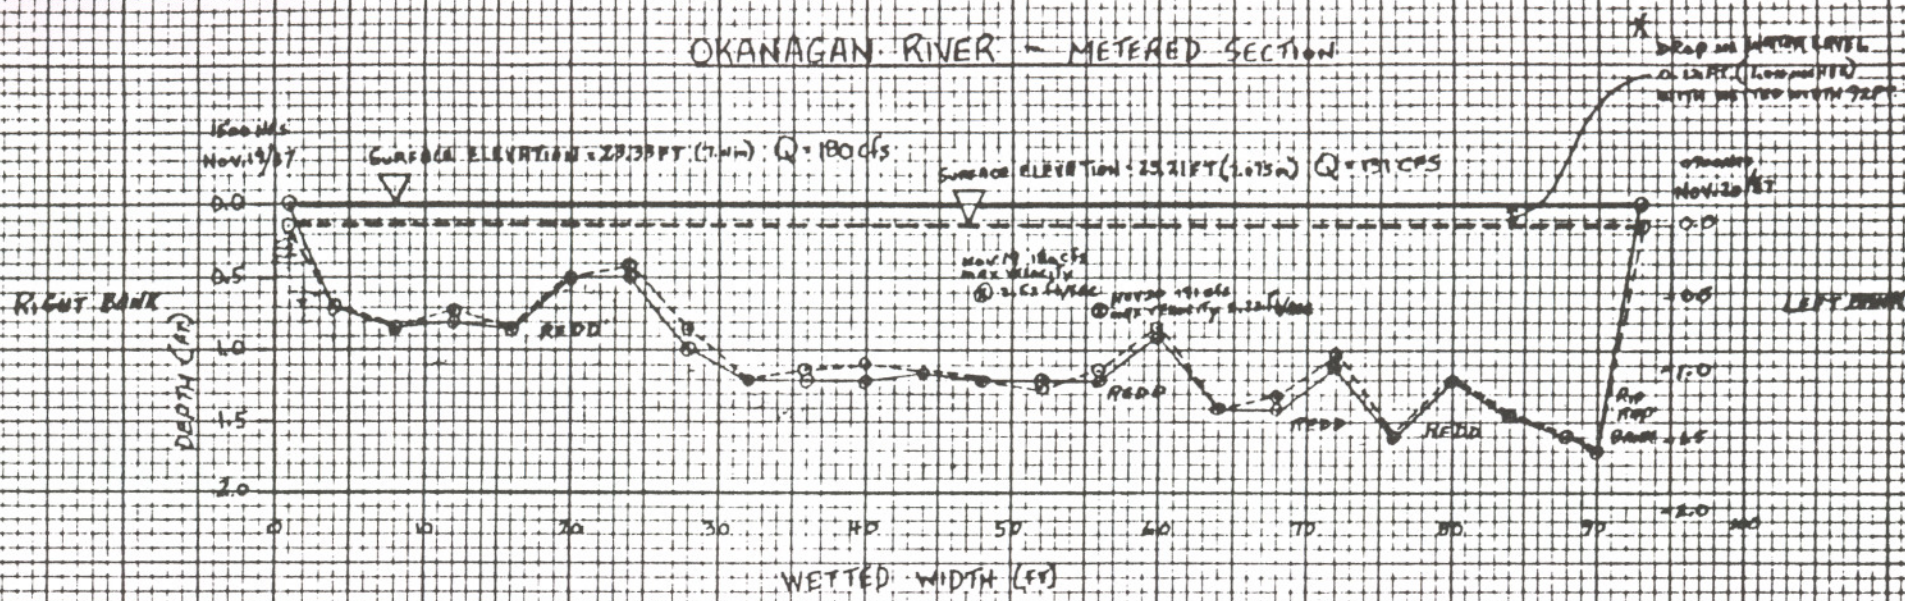 OKANAGAN RIVER - METERED SECTION
DROP IN WATER LEVEL
WITH WETTED WIDTH 92FT
1500 HRS
NOV. 19/87
SURFACE ELEVATION = 23.33 FT (7.11m) Q = 180 cfs
SURFACE ELEVATION = 23.21 FT (7.075m) Q = 131 CFS
NOV. 20/87
0.0
0.0
NOV 19 180 cfs
MAX VELOCITY
2.52 ft/sec
NOV 20 131 cfs
MAX VELOCITY
0.5
0.5
RIGHT BANK
LEFT BANK
REDD
DEPTH (FT)
1.0
1.0
REDD
REDD
REDD
RIP
RAP
BANK
1.5
1.5
2.0
2.0
0 10 20 30 40 50 60 70 80 90 100
WETTED WIDTH (FT)